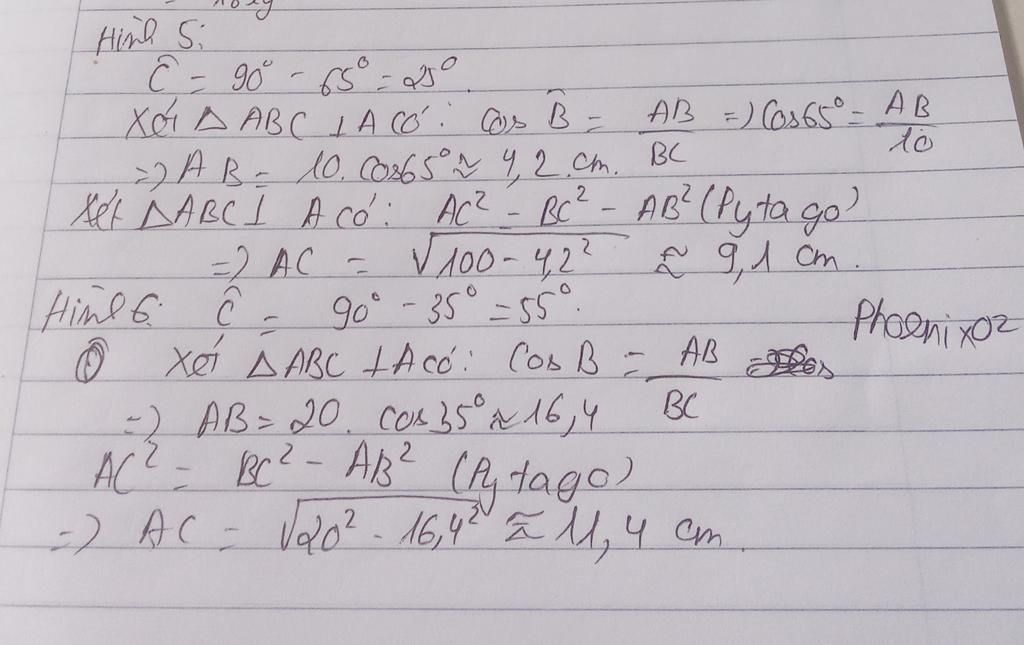 Hình 5:
Ĉ = 90° - 65° = 25°.
Xét △ABC ⊥A có: Cos B̂ = AB/BC => Cos65° = AB/10
=> AB = 10.Cos65° ≈ 4,2 cm.
Xét △ABC⊥ A có: AC² - BC² - AB² (Pytago)
=> AC = √(100 - 4,2²) ≈ 9,1 cm.
Hình 6: Ĉ = 90° - 35° = 55°.
PhoenixO2
Xét △ABC ⊥A có: Cos B = AB/BC
=> AB = 20. cos35° ≈ 16,4
AC² = BC² - AB² (Pytago)
=> AC = √(20² - 16,4²) ≈ 11,4 cm.